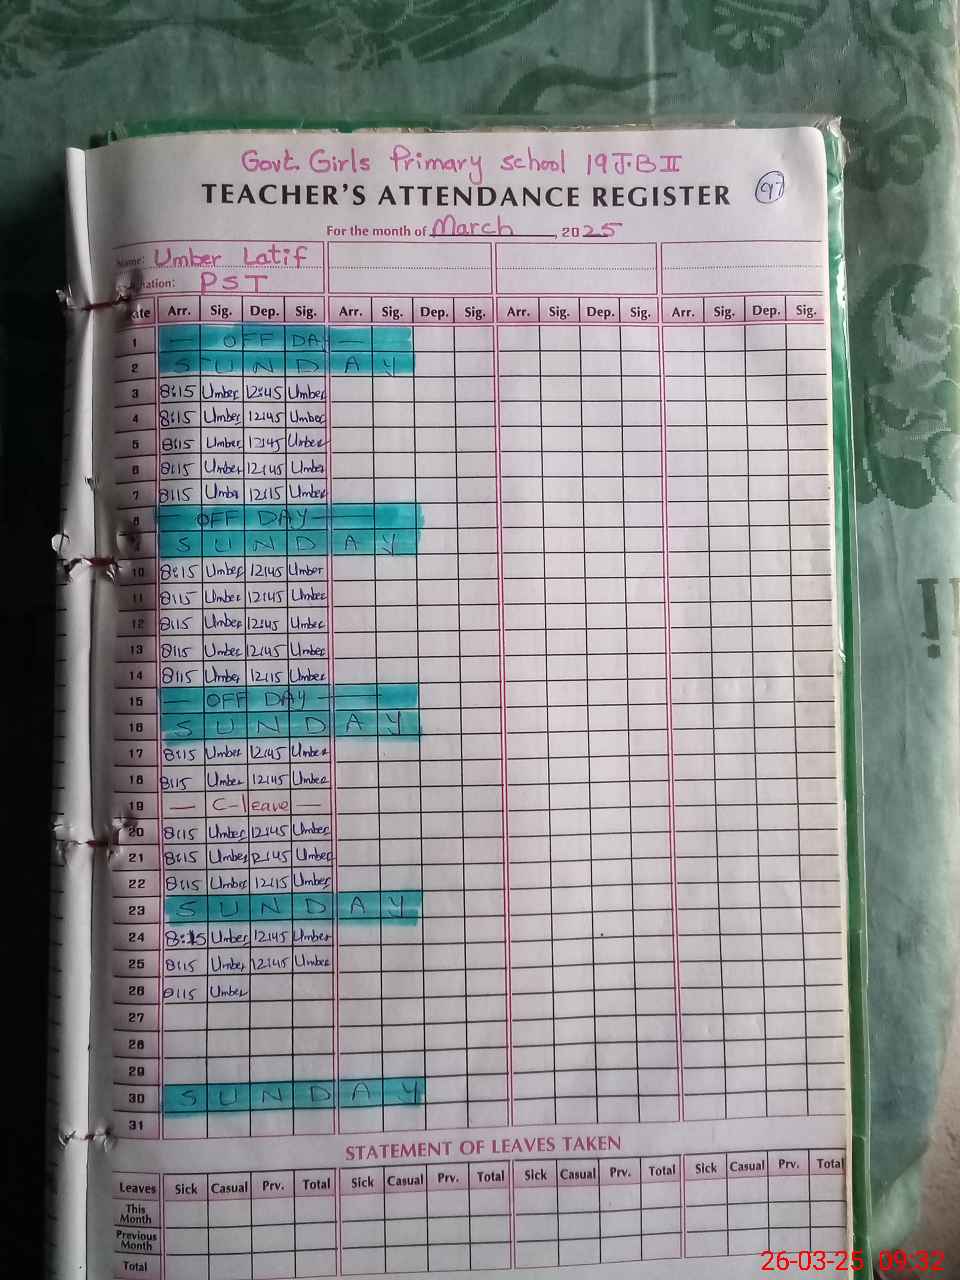 Govt. Girls Primary school 19 J.B II
TEACHER'S ATTENDANCE REGISTER 97
For the month of March, 2025
Name: Umber Latif
nation: PST
ate Arr. Sig. Dep. Sig. Arr. Sig. Dep. Sig. Arr. Sig. Dep. Sig. Arr. Sig. Dep. Sig.
1 — OFF DAY —
2 SUNDAY
3 8:15 Umber 12:45 Umber
4 8:15 Umber 12:45 Umber
5 8:15 Umber 12:45 Umber
6 8:15 Umber 12:45 Umber
7 8:15 Umber 12:15 Umber
8 — OFF DAY —
SUNDAY
10 8:15 Umber 12:45 Umber
11 8:15 Umber 12:45 Umber
12 8:15 Umber 12:45 Umber
13 8:15 Umber 12:45 Umber
14 8:15 Umber 12:15 Umber
15 — OFF DAY —
16 SUNDAY
17 8:15 Umber 12:45 Umber
18 8:15 Umber 12:45 Umber
19 — C-leave —
20 8:15 Umber 12:45 Umber
21 8:15 Umber 12:45 Umber
22 8:15 Umber 12:15 Umber
23 SUNDAY
24 8:15 Umber 12:45 Umber
25 8:15 Umber 12:45 Umber
26 8:15 Umber
27
28
29
30 SUNDAY
31
STATEMENT OF LEAVES TAKEN
Leaves Sick Casual Prv. Total Sick Casual Prv. Total Sick Casual Prv. Total Sick Casual Prv. Total
This Month
Previous Month
Total
26-03-25 09:32